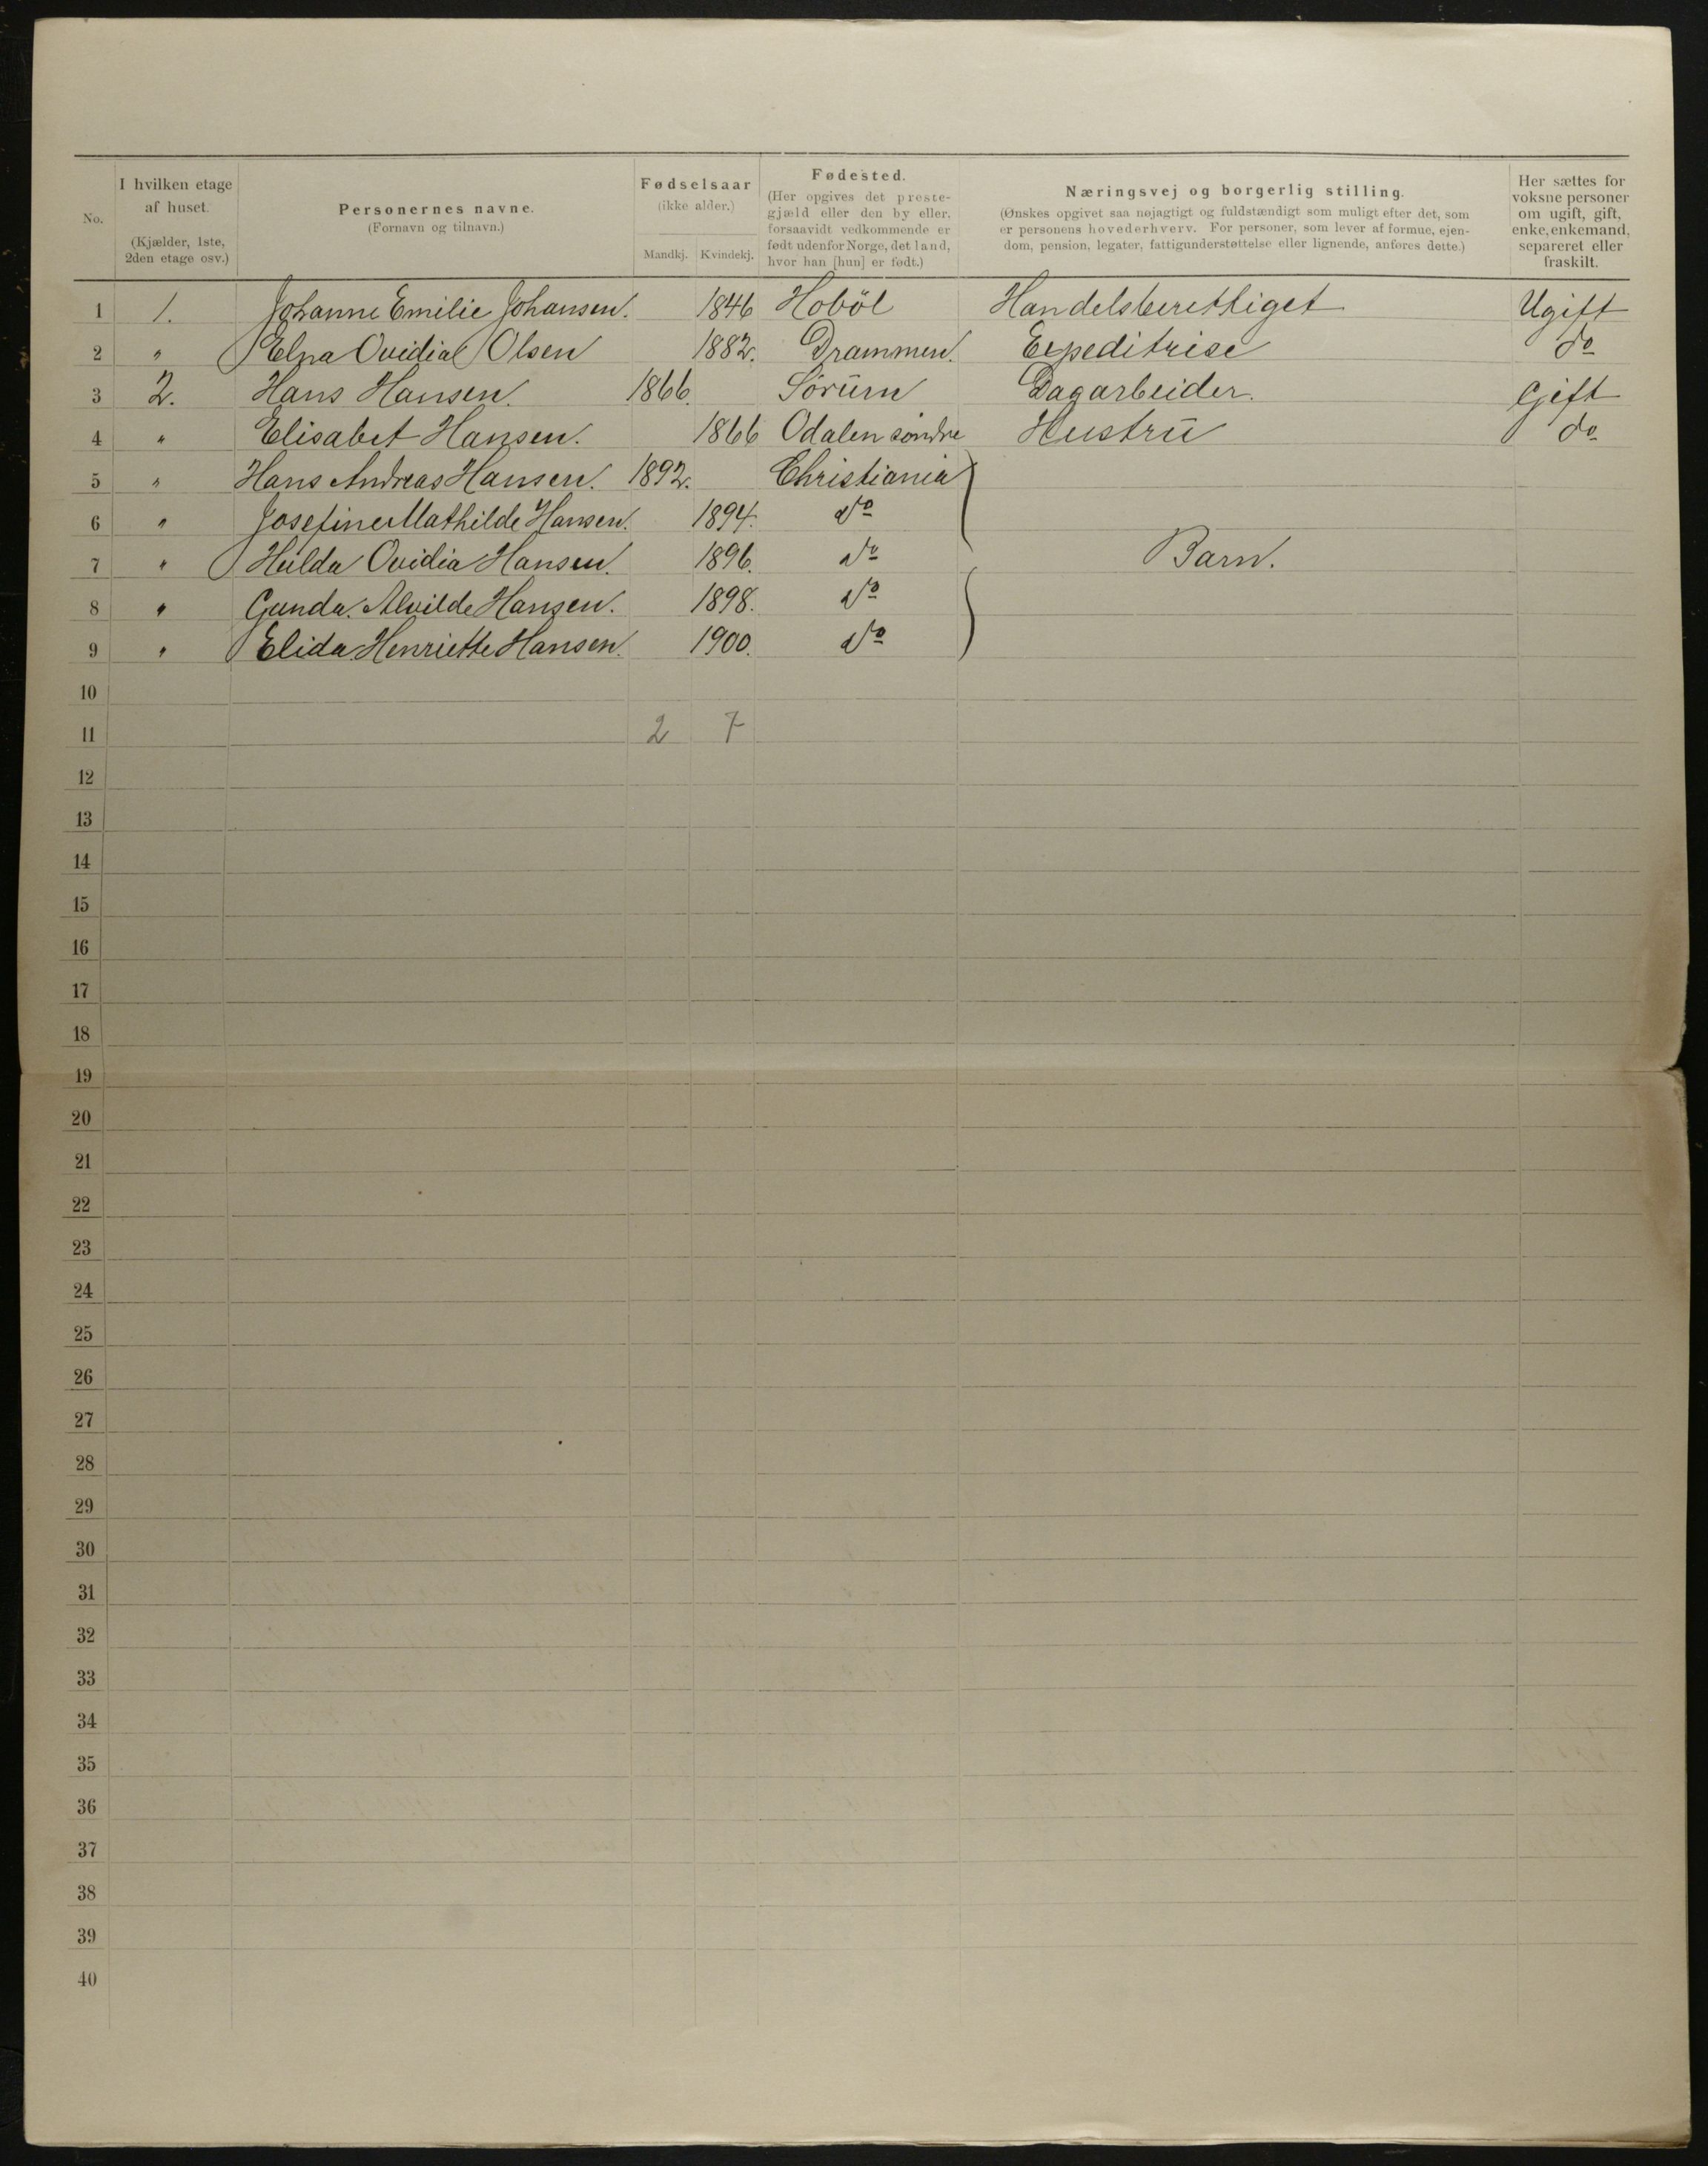 No.
I hvilken etage af huset. (Kjælder, 1ste, 2den etage osv.)
Personernes navne. (Fornavn og tilnavn.)
Fødselsaar (ikke alder.)
Mandkj. Kvindekj.
Fødested. (Her opgives det prestegjæld eller den by eller, forsaavidt vedkommende er født udenfor Norge, det land, hvor han [hun] er født.)
Næringsvej og borgerlig stilling. (Ønskes opgivet saa nøjagtigt og fuldstændigt som muligt efter det, som er personens hovederhverv. For personer, som lever af formue, ejendom, pension, legater, fattigunderstøttelse eller lignende, anføres dette.)
Her sættes for voksne personer om ugift, gift, enke, enkemand, separeret eller fraskilt.
1 1. Johanne Emilie Johansen. 1846 Hoböl Handelsberettiget Ugift
2 " Elna Ovidia Olsen 1882. Drammen. Expeditrise do
3 2. Hans Hansen. 1866. Sørŭm Dagarbeider. Gift
4 " Elisabet Hansen. 1866 Odalen søndre Hustrŭ do
5 " Hans Andreas Hansen. 1892. Christiania
6 " Josefine Mathilde Hansen. 1894. do
7 " Hulda Ovidia Hansen. 1896. do Barn.
8 " Gunda. Alvilde Hansen. 1898. do
9 " Elida Henriette Hansen. 1900. do
10
11 2 7
12
13
14
15
16
17
18
19
20
21
22
23
24
25
26
27
28
29
30
31
32
33
34
35
36
37
38
39
40